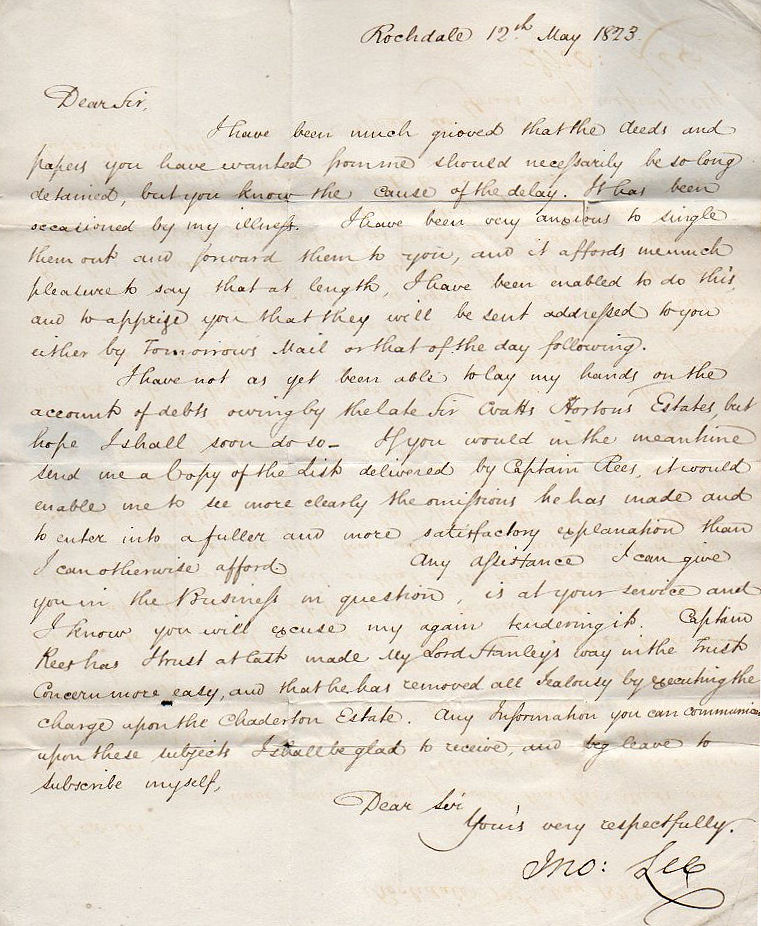 Rochdale 12th May 1823.
Dear Sir,
I have been much grieved that the deeds and
papers you have wanted from me should necessarily be so long
detained, but you know the cause of the delay. It has been
occasioned by my illness. I have been very anxious to single
them out and forward them to you, and it affords me much
pleasure to say that at length, I have been enabled to do this,
and to apprize you that they will be sent addressed to you
either by Tomorrows Mail or that of the day following.
I have not as yet been able to lay my hands on the
account of debts owing by the late Sir Watts Horton's Estates, but
hope I shall soon do so – If you would in the meantime
send me a Copy of the List delivered by Captain Rees, it would
enable me to see more clearly the omissions he has made and
to enter into a fuller and more satisfactory explanation than
I can otherwise afford Any assistance I can give
you in the Business in question, is at your service and
I know you will excuse my again tendering it. Captain
Rees has I trust at last made My Lord Stanley's way in the Trust
Concern more easy, and that he has removed all Jealousy by executing the
charge upon the Chaderton Estate. Any Information you can communicate
upon these subjects I shall be glad to receive, and beg leave to
subscribe myself,
Dear Sir
Your's very respectfully.
Jno: Lee